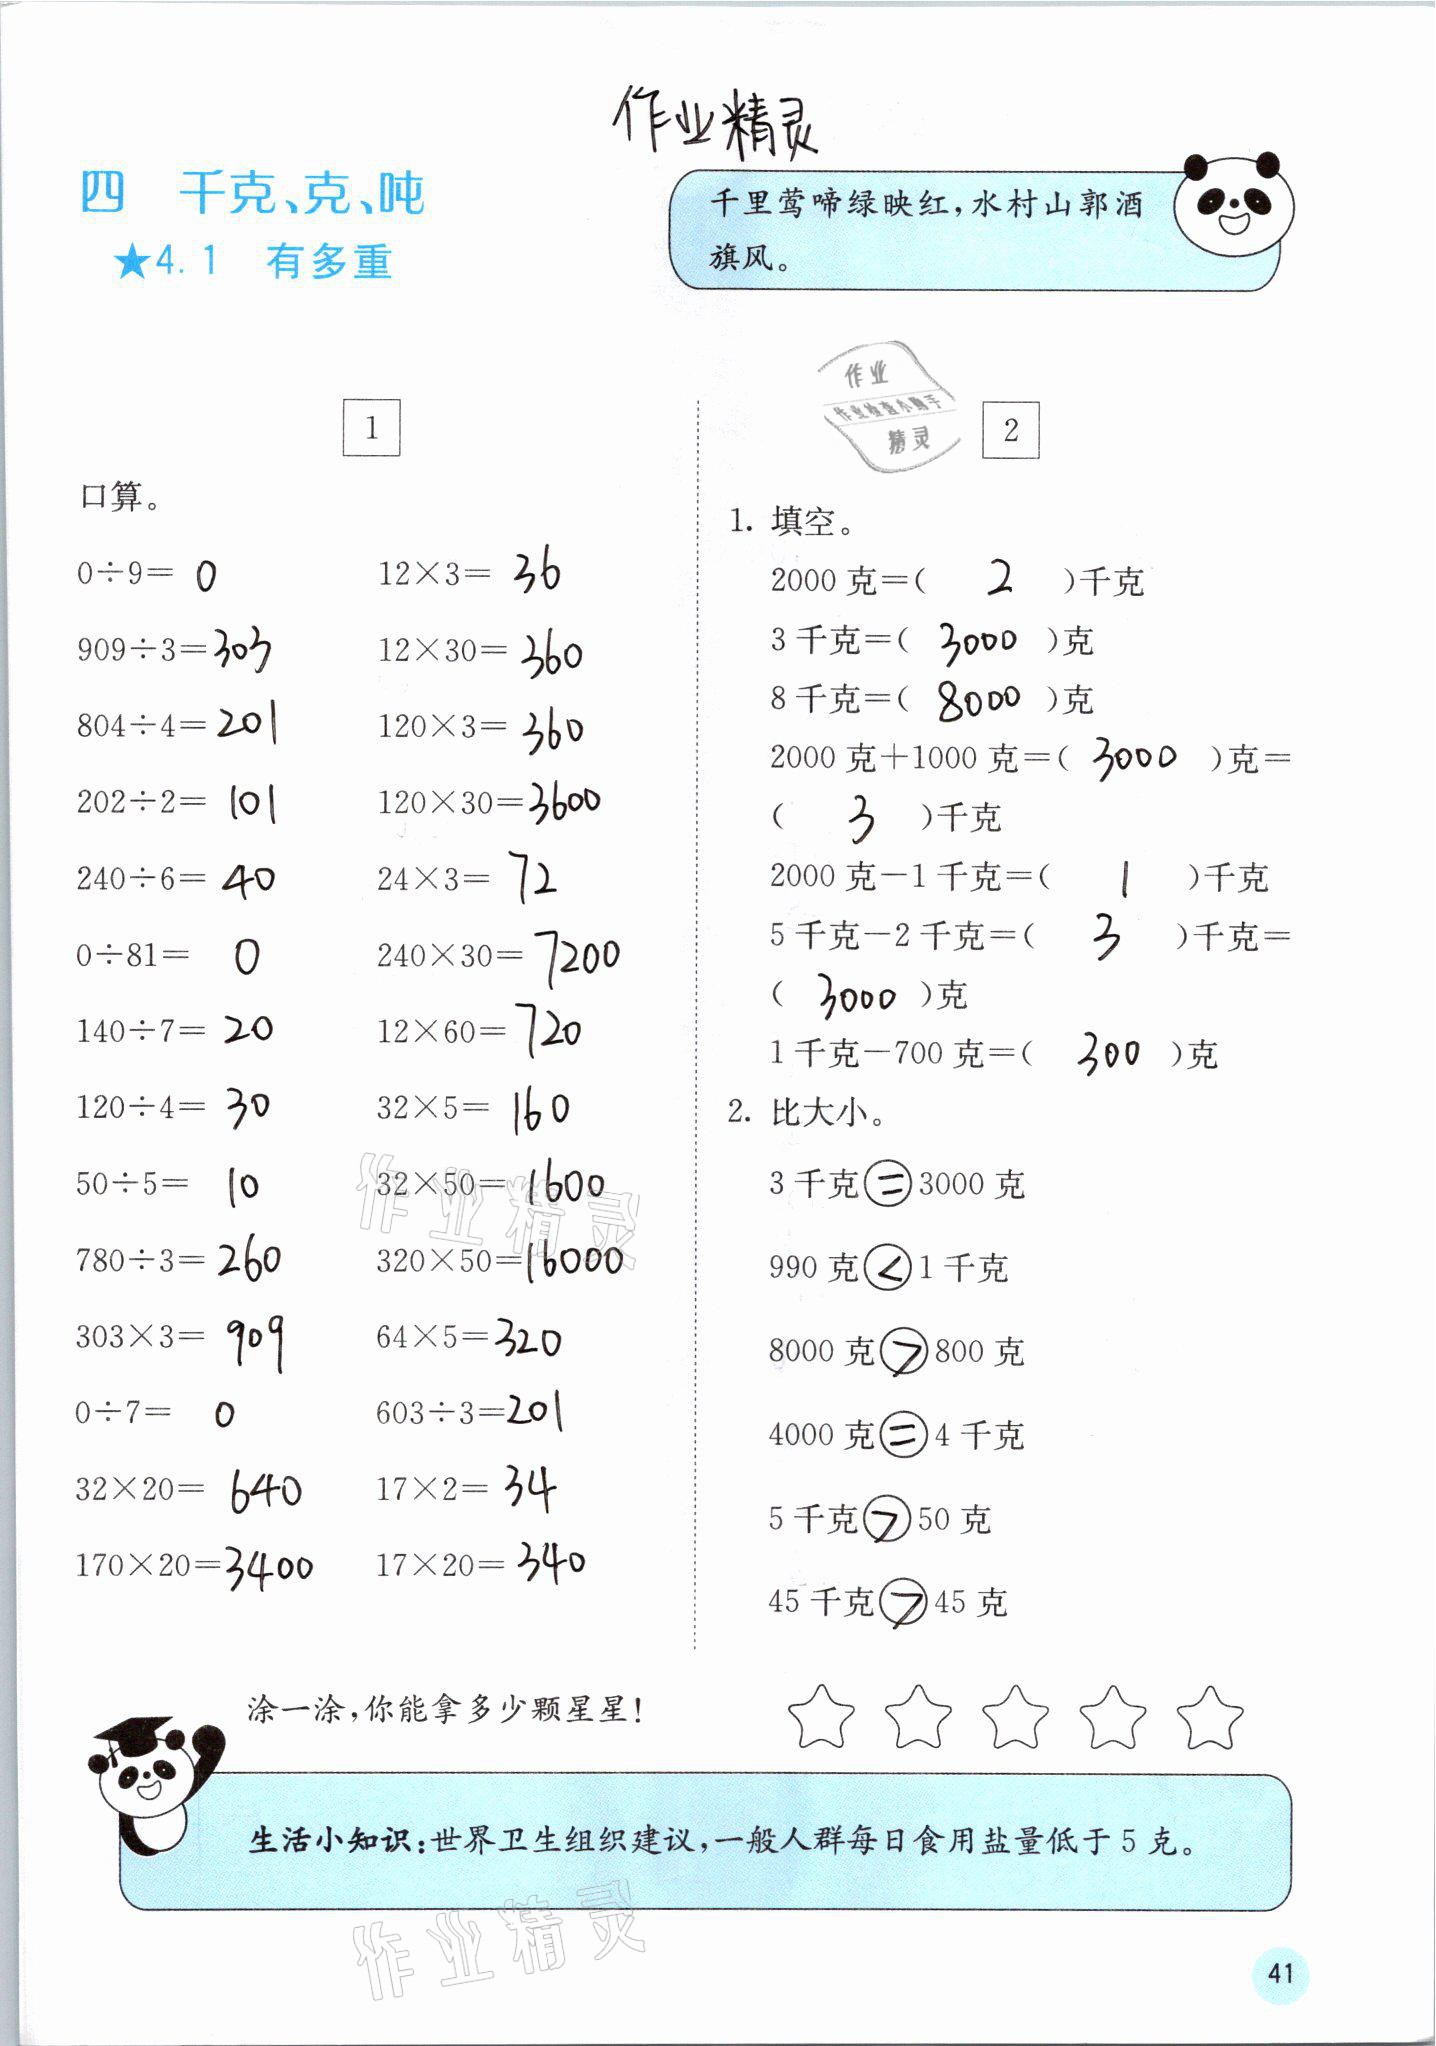 作业精灵
四 千克、克、吨
★4.1 有多重
千里莺啼绿映红，水村山郭酒
旗风。
作业
作业检查小助手
精灵
1
口算。
0÷9= 0 12×3= 36
909÷3=303 12×30= 360
804÷4=201 120×3= 360
202÷2= 101 120×30=3600
240÷6= 40 24×3= 72
0÷81= 0 240×30= 7200
140÷7= 20 12×60= 720
120÷4= 30 32×5= 160
50÷5= 10 32×50= 1600
780÷3= 260 320×50=16000
303×3= 909 64×5=320
0÷7= 0 603÷3=201
32×20= 640 17×2= 34
170×20=3400 17×20= 340
2
1. 填空。
2000 克=( 2 )千克
3 千克=( 3000 )克
8 千克=( 8000 )克
2000 克+1000 克=( 3000 )克=
( 3 )千克
2000 克-1 千克=( 1 )千克
5 千克-2 千克=( 3 )千克=
( 3000 )克
1 千克-700 克=( 300 )克
2. 比大小。
3 千克=3000 克
990 克<1 千克
8000 克>800 克
4000 克=4 千克
5 千克>50 克
45 千克>45 克
作业精灵
涂一涂，你能拿多少颗星星！
生活小知识：世界卫生组织建议，一般人群每日食用盐量低于 5 克。
作业精灵
41